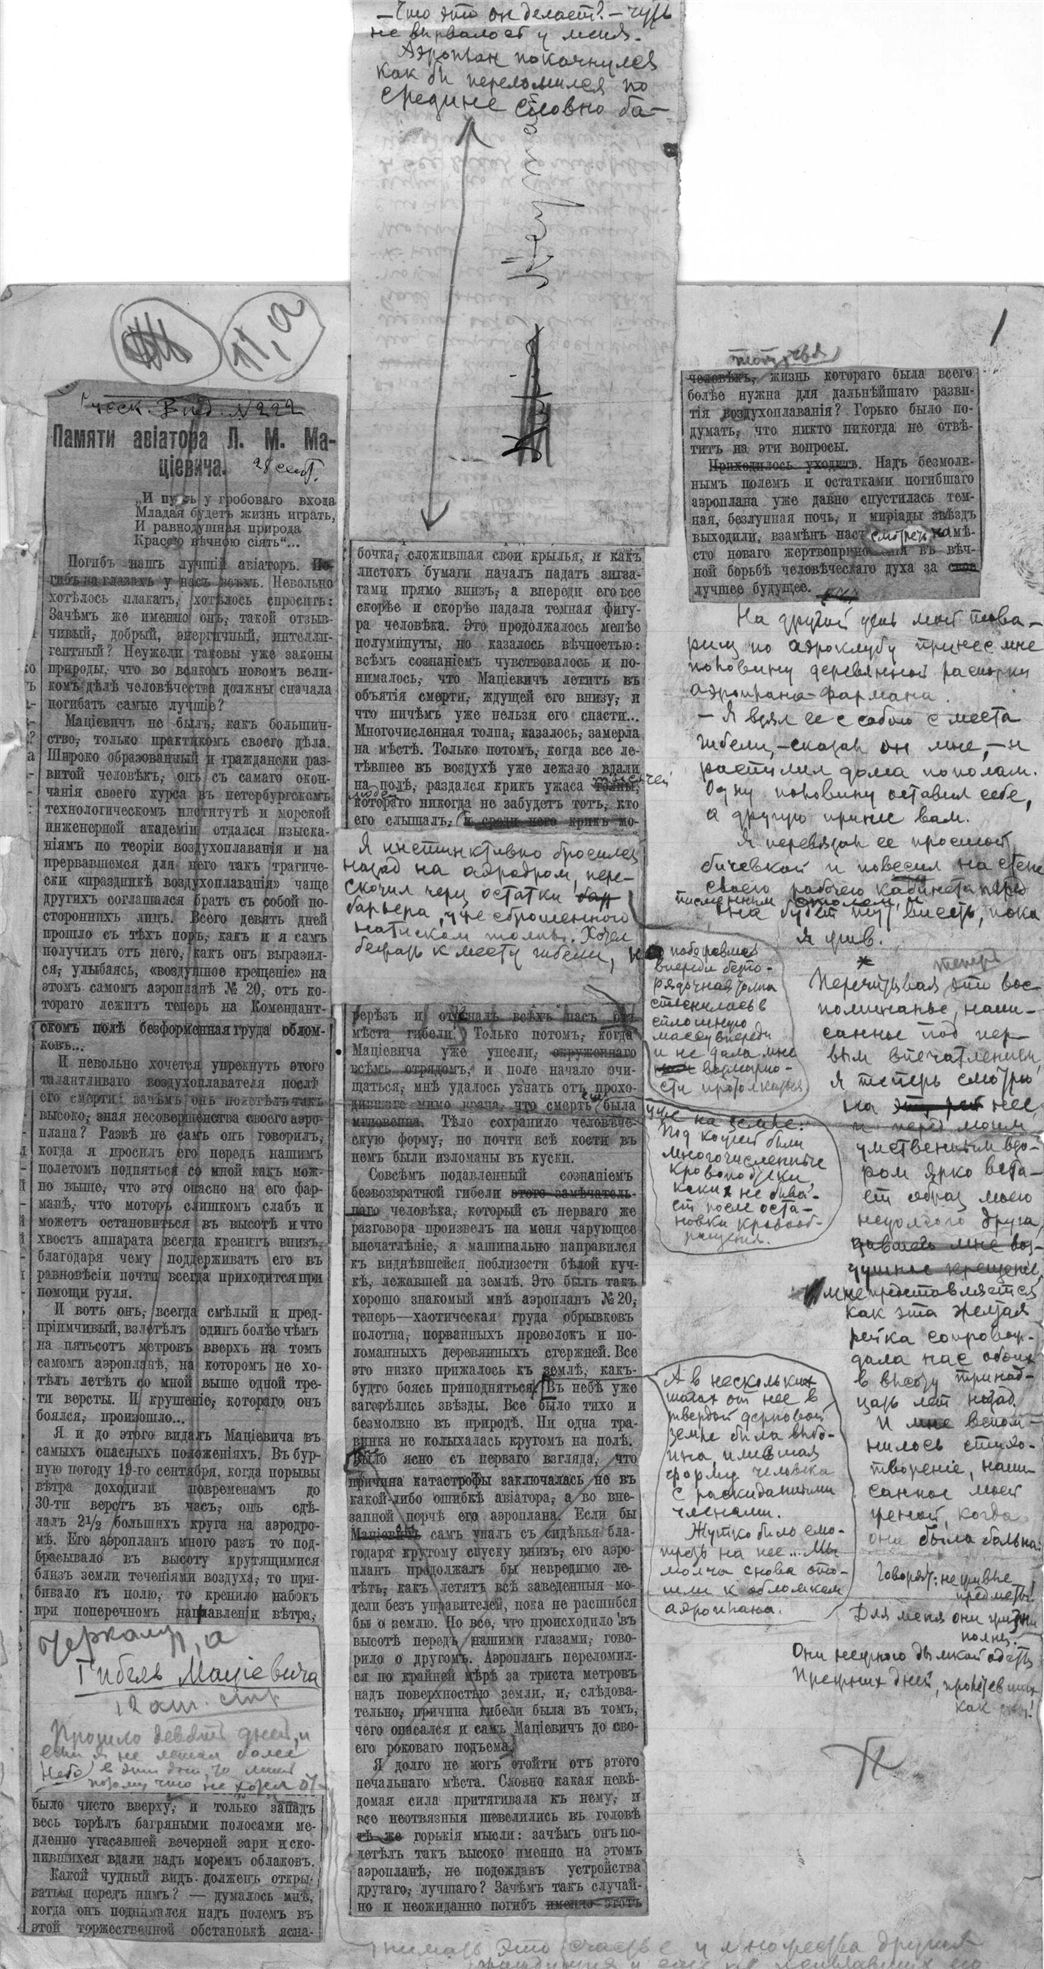 11, а
1
ческ. Вѣд. № 222
Памяти авіатора Л. М. Ма-
ціевича.
28 сент.
„И пусть у гробоваго входа
Младая будетъ жизнь играть,
И равнодушная природа
Красою вѣчною сіять“...
Погибъ нашъ лучшій авіаторъ. По-
гибъ на глазахъ у насъ всѣхъ. Невольно
хотѣлось плакать, хотѣлось спросить:
Зачѣмъ же именно онъ, такой отзыв-
чивый, добрый, энергичный, интелли-
гентный? Неужели таковы уже законы
природы, что во всякомъ новомъ вели-
комъ дѣлѣ человѣчества должны сначала
погибать самые лучшіе?
Маціевичъ не былъ, какъ большин-
ство, только практикомъ своего дѣла.
Широко образованный и граждански раз-
витой человѣкъ, онъ съ самаго окон-
чанія своего курса въ петербургскомъ
технологическомъ институтѣ и морской
инженерной академіи отдался изыска-
ніямъ по теоріи воздухоплаванія и на
прервавшемся для него такъ трагиче-
ски «праздникѣ воздухоплаванія» чаще
другихъ соглашался брать съ собой по-
стороннихъ лицъ. Всего девять дней
прошло съ тѣхъ поръ, какъ и я самъ
получилъ отъ него, какъ онъ выразил-
ся, улыбаясь, «воздушное крещеніе» на
этомъ самомъ аэропланѣ № 20, отъ ко-
тораго лежитъ теперь на Комендант-
скомъ полѣ безформенная груда облом-
ковъ...
И невольно хочется упрекнуть этого
талантливаго воздухоплавателя послѣ
его смерти: зачѣмъ онъ полетѣлъ такъ
высоко, зная несовершенства своего аэро-
плана? Развѣ не самъ онъ говорилъ,
когда я просилъ его передъ нашимъ
полетомъ подняться со мной какъ мож-
но выше, что это опасно на его фар-
манѣ, что моторъ слишкомъ слабъ и
можетъ остановиться въ высотѣ и что
хвостъ аппарата всегда кренитъ внизъ,
благодаря чему поддерживать его въ
равновѣсіи почти всегда приходится при
помощи руля.
И вотъ онъ, всегда смѣлый и пред-
пріимчивый, взлетѣлъ одинъ болѣе чѣмъ
на пятьсотъ метровъ вверхъ на томъ
самомъ аэропланѣ, на которомъ не хо-
тѣлъ летѣть со мной выше одной тре-
ти версты. И крушеніе, котораго онъ
боялся, произошло...
Я и до этого видалъ Маціевича въ
самыхъ опасныхъ положеніяхъ. Въ бур-
ную погоду 19-го сентября, когда порывы
вѣтра доходили повременамъ до
30-ти верстъ въ часъ, онъ сдѣ-
лалъ 2½ большихъ круга на аэродро-
мѣ. Его аэропланъ много разъ то под-
брасывало въ высоту крутящимися
близъ земли теченіями воздуха, то при-
бивало къ полю, то кренило набокъ
при поперечномъ направленіи вѣтра,
Гибель Маціевича
Прошло девять дней, и
если я не летал более
в эти дни, то лишь
потому что не хотел от-
Небо
было чисто вверху, и только западъ
весь горѣлъ багряными полосами ме-
дленно угасавшей вечерней зари и ско-
пившихся вдали надъ моремъ облаковъ.
Какой чудный видъ долженъ откры-
ваться передъ нимъ? — думалось мнѣ,
когда онъ поднимался надъ полемъ въ
этой торжественной обстановкѣ ясна-
— Что это он делает? — чуть
не вырвалось у меня.
Аэроплан покачнулся
как бы переломился по
средине словно ба-
бочка, сложившая свои крылья, и какъ
листокъ бумаги началъ падать зигза-
гами прямо внизъ, а впереди его все
скорѣе и скорѣе падала темная фигу-
ра человѣка. Это продолжалось менѣе
полуминуты, но казалось вѣчностью:
всѣмъ сознаніемъ чувствовалось и по-
нималось, что Маціевичъ летитъ въ
объятія смерти, ждущей его внизу, и
что ничѣмъ уже нельзя его спасти...
Многочисленная толпа, казалось, замерла
на мѣстѣ. Только потомъ, когда все ле-
тѣвшее въ воздухѣ уже лежало вдали
на полѣ, раздался крикъ ужаса толпы,
котораго никогда не забудетъ тотъ, кто
его слышалъ, и среди него крикъ мо-
Я инстинктивно бросился
назад на аэродром, пере-
скочил через остатки бар
барьера, уже сброшенного
натиском толпы. Хотел
бежать к месту гибели, но
перерѣз и отогналъ всѣхъ насъ отъ
мѣста гибели. Только потомъ, когда
Маціевича уже унесли, окруженнаго
всѣмъ отрядомъ, и поле начало очи-
щаться, мнѣ удалось узнать отъ прохо-
дившаго мимо врача, что смерть была
мгновенна. Тѣло сохранило человѣче-
скую форму, но почти всѣ кости въ
немъ были изломаны въ куски.
Совсѣмъ подавленный сознаніемъ
безвозвратной гибели этого замѣчатель-
наго человѣка, который съ перваго же
разговора произвелъ на меня чарующее
впечатлѣніе, я машинально направился
къ виднѣвшейся поблизости бѣлой куч-
кѣ, лежавшей на землѣ. Это былъ такъ
хорошо знакомый мнѣ аэропланъ № 20,
теперь—хаотическая груда обрывковъ
полотна, порванныхъ проволокъ и по-
ломанныхъ деревянныхъ стержней. Все
это низко прижалось къ землѣ, какъ-
будто боясь приподняться. Въ небѣ уже
загорѣлись звѣзды. Все было тихо и
безмолвно въ природѣ. Ни одна тра-
винка не колыхалась кругомъ на полѣ.
Было ясно съ перваго взгляда, что
причина катастрофы заключалась не въ
какой-либо ошибкѣ авіатора, а во вне-
запной порчѣ его аэроплана. Если бы
Маціевичъ самъ упалъ съ сидѣнья бла-
годаря крутому спуску внизъ, его аэро-
планъ продолжалъ бы невредимо ле-
тѣть, какъ летятъ всѣ заведенныя мо-
дели безъ управителей, пока не расшибся
бы о землю. Но все, что происходило въ
высотѣ передъ нашими глазами, гово-
рило о другомъ. Аэропланъ переломил-
ся по крайней мѣрѣ за триста метровъ
надъ поверхностью земли, и, слѣдова-
тельно, причина гибели была въ томъ,
чего опасался и самъ Маціевичъ до сво-
его роковаго подъема.
Я долго не могъ отойти отъ этого
печальнаго мѣста. Словно какая невѣ-
домая сила притягивала къ нему, и
все неотвязныя шевелились въ головѣ
тѣ же горькія мысли: зачѣмъ онъ по-
летѣлъ такъ высоко именно на этомъ
аэропланѣ, не подождавъ устройства
другаго, лучшаго? Зачѣмъ такъ случай-
но и неожиданно погибъ именно этотъ
человѣкъ, жизнь котораго была всего
болѣе нужна для дальнѣйшаго разви-
тія воздухоплаванія? Горько было по-
думать, что никто никогда не отвѣ-
титъ на эти вопросы.
Приходилось уходить. Надъ безмолв-
нымъ полемъ и остатками погибшаго
аэроплана уже давно спустилась тем-
ная, безлунная ночь, и миріады звѣздъ
выходили, взамѣнъ насъ, смотрѣть на мѣ-
сто новаго жертвоприношенія въ вѣч-
ной борьбѣ человѣческаго духа за свое
лучшее будущее.
На другой день мой това-
рищ по аэроклубу принес мне
половину деревянной распорки
аэроплана-фармана.
— Я взял ее с собою с места
гибели, — сказал он мне, — и
распилил дома пополам.
Одну половину оставил себе,
а другую принес вам.
Я перевязал ее простой
бичевкой и повесил на стене
своего рабочего кабинета перед
письменным столом, и
она будет тут висеть, пока
я жив.
*
Перечитывая теперь это вос-
поминанье, напи-
санное под пер-
вым впечатлением,
я теперь смотрю
на нее,
и перед моим
умственным взо-
ром ярко вста-
ет образ моего
недолгого друга,
давшего мне воз-
душное крещение,
мне представляется
как эта желтая
рейка сопровож-
дала нас обоих
в высоту тринад-
цать лет назад.
И мне вспом-
нилось стихо-
творение, напи-
санное моей
женой, когда
она была больна:
Говорят: не живые
предметы!
Для меня они жизни
полны.
Они нежною дымкой одеты
Прежних дней, пролетевших
как сны!
подоравшая
впереди бегло-
рядочная толпа
стеснилась в
сплошную
массу впереди
и не дала мне
возможно-
сти продолжения
уже на земле:
Под кожей были
многочисленные
кровоподтеки
каких не быва-
ет после оста-
новки кровооб-
ращения.
А в нескольких
шагах от нее в
твердой дерновой
земле была выбо-
ина, имевшая
форму человека
с раскиданными
членами.
Жутко было смо-
треть на нее... Мы
молча снова ото-
шли к обломкам
аэроплана.